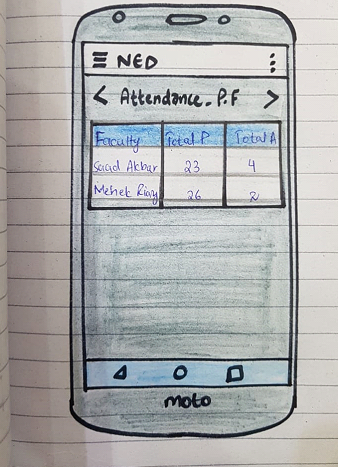 NED
Attendance_P.F
Faculty Total P Total A
Saad Akbar 23 4
Mehek Riaz 26 2
moto